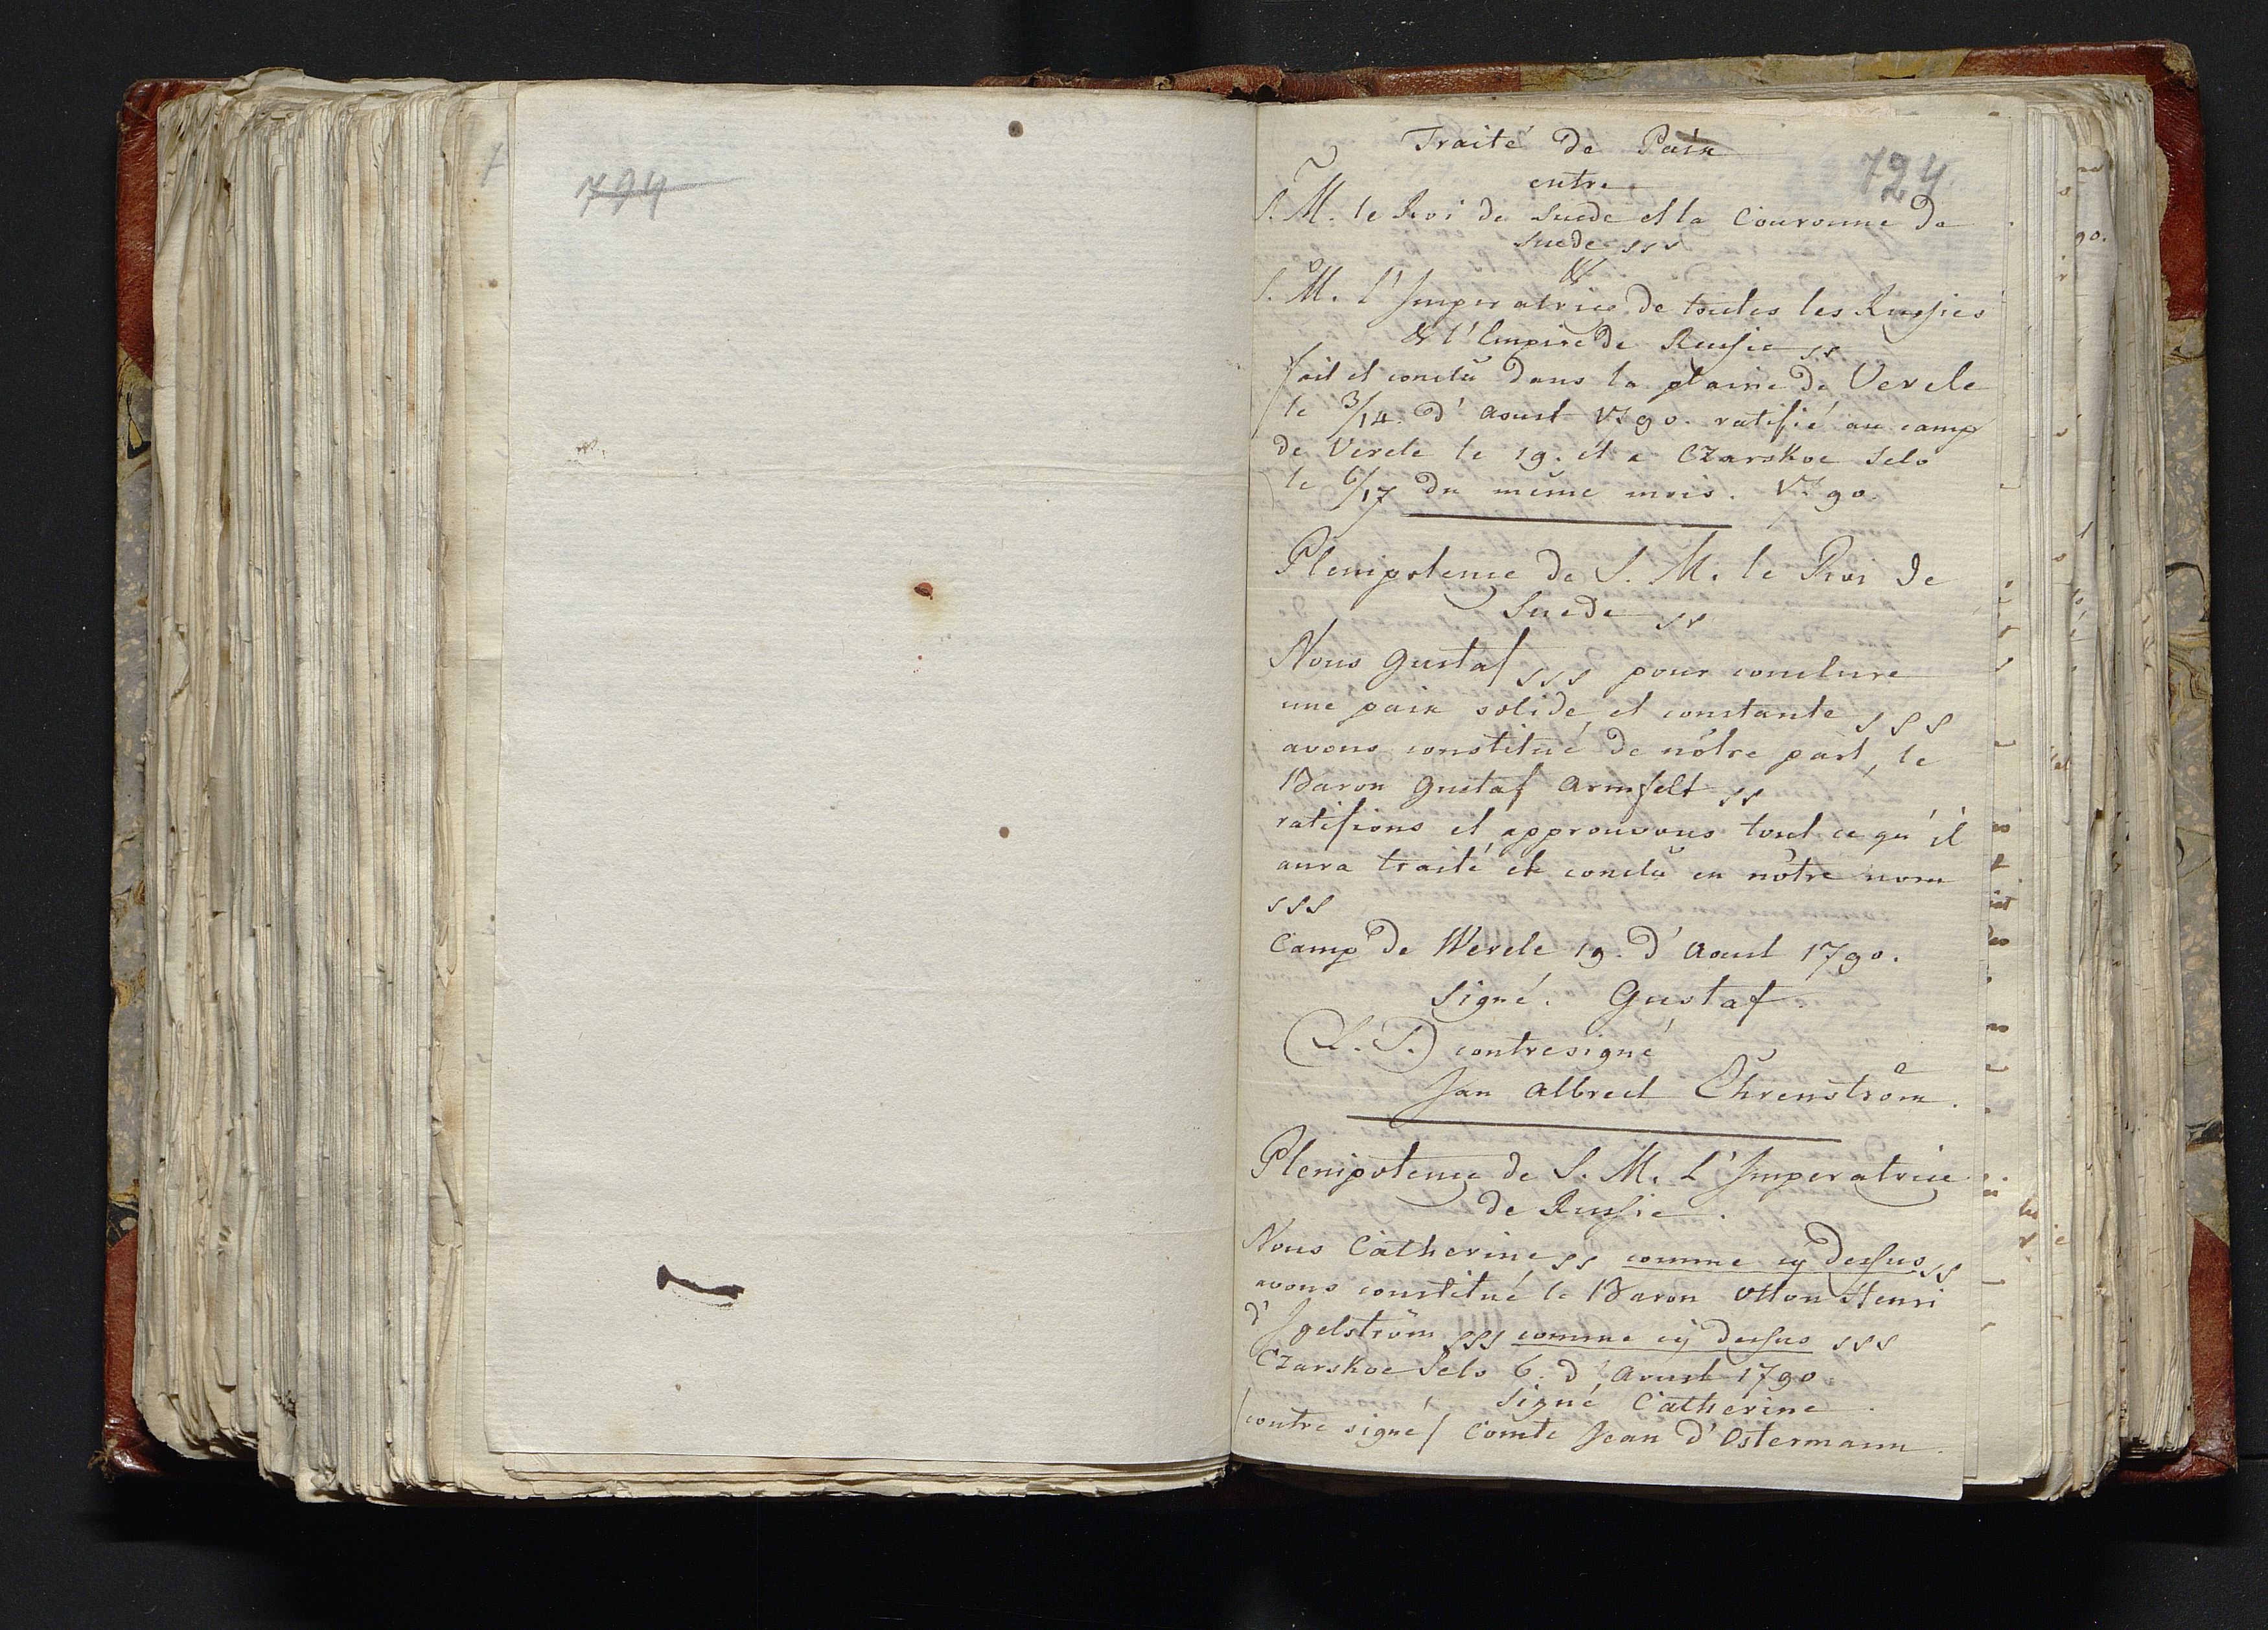 794
724
Traité de Paix
entre
S. M. le Roi de Suede et la Couronne de
Suede sss
&
S. M. l'Imperatrice de toutes les Russies
& l'Empire de Russie ss
fait et conclû dans la plaine de Verele
le 3/14. d'Aoust 1790. ratifié au camp
de Verele le 19. et a Czarskoe Selo
le 6/17 du même mois. 1790.
Plenipotence de S. M. le Roi de
Suede ss
Nous Gustaf sss pour conclure
une paix solide et constante sss
avons constitué de nôtre part, le
Baron Gustaf Armfelt ss
ratifions et approuvons tout ce qu'il
aura traité et conclû en nôtre nom
sss
Camp de Werele 19. d'Aoust 1790.
Signé. Gustaf.
(L.S.) contresigné
Jan Albrect Ehrenström.
Plenipotence de S. M. L'Imperatrice
de Russie.
Nous Catherine ss comme cy dessus ss
avons constitué le Baron Otton Henri
d'Igelström sss comme cy dessus sss
Czarskoe Selo 6. d'Aoust 1790
Signé Catherine.
/contre signé/ Comte Jean d'Ostermann.